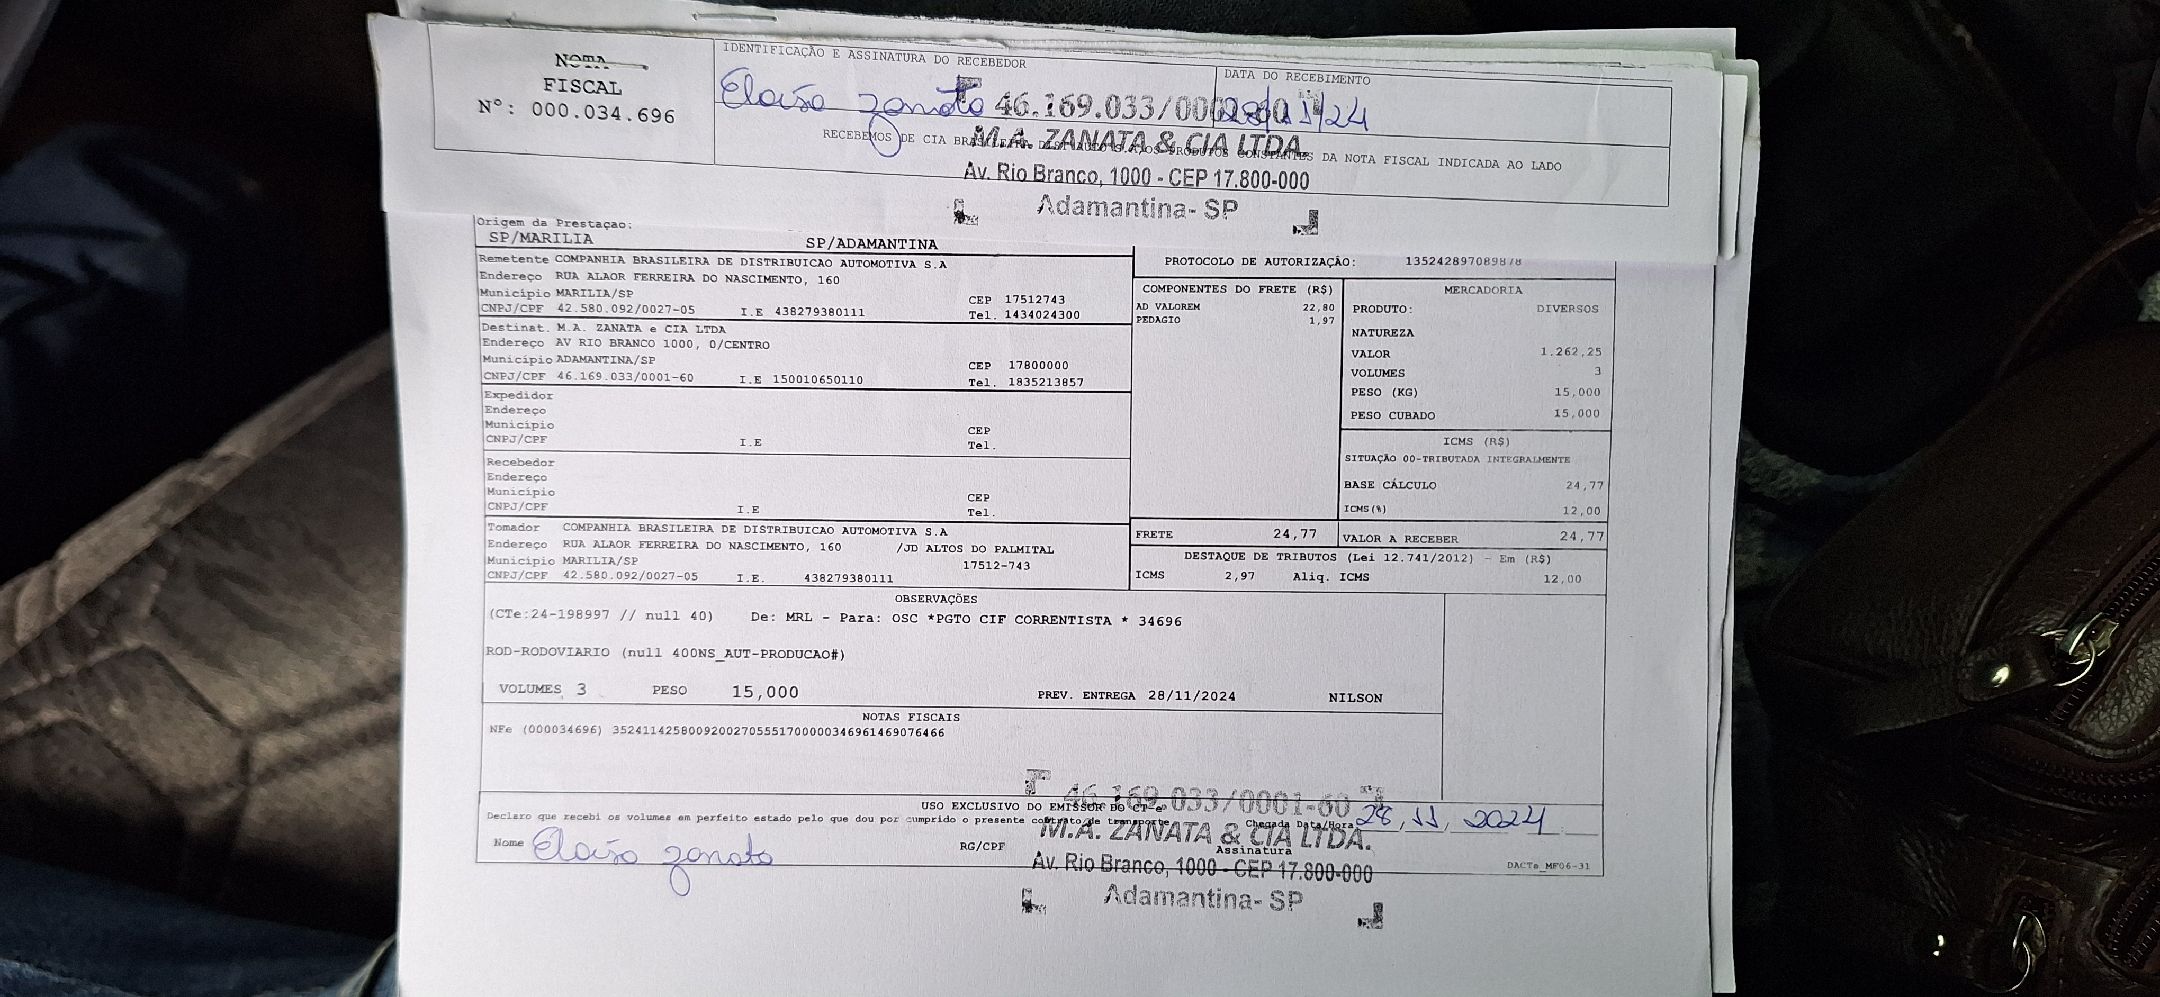 NOTA
FISCAL
Nº: 000.034.696
IDENTIFICAÇÃO E ASSINATURA DO RECEBEDOR
DATA DO RECEBIMENTO
46.169.033/0001-60
28/11/24
RECEBEMOS DE CIA BRASILEIRA PRODUTOS CONSTANTES DA NOTA FISCAL INDICADA AO LADO
M.A. ZANATA & CIA LTDA.
Av. Rio Branco, 1000 - CEP 17.800-000
Adamantina- SP
Origem da Prestaçao:
SP/MARILIA SP/ADAMANTINA
Remetente COMPANHIA BRASILEIRA DE DISTRIBUICAO AUTOMOTIVA S.A
Endereço RUA ALAOR FERREIRA DO NASCIMENTO, 160
Município MARILIA/SP CEP 17512743
CNPJ/CPF 42.580.092/0027-05 I.E 438279380111 Tel. 1434024300
Destinat. M.A. ZANATA e CIA LTDA
Endereço AV RIO BRANCO 1000, 0/CENTRO
Município ADAMANTINA/SP CEP 17800000
CNPJ/CPF 46.169.033/0001-60 I.E 150010650110 Tel. 1835213857
Expedidor
Endereço
Município CEP
CNPJ/CPF I.E Tel.
Recebedor
Endereço
Município CEP
CNPJ/CPF I.E Tel.
Tomador COMPANHIA BRASILEIRA DE DISTRIBUICAO AUTOMOTIVA S.A
Endereço RUA ALAOR FERREIRA DO NASCIMENTO, 160 /JD ALTOS DO PALMITAL
Município MARILIA/SP 17512-743
CNPJ/CPF 42.580.092/0027-05 I.E. 438279380111
PROTOCOLO DE AUTORIZAÇÃO: 135242897089878
COMPONENTES DO FRETE (R$)
AD VALOREM 22,80
PEDAGIO 1,97
MERCADORIA
PRODUTO: DIVERSOS
NATUREZA
VALOR 1.262,25
VOLUMES 3
PESO (KG) 15,000
PESO CUBADO 15,000
ICMS (R$)
SITUAÇÃO 00-TRIBUTADA INTEGRALMENTE
BASE CÁLCULO 24,77
ICMS(%) 12,00
FRETE 24,77 VALOR A RECEBER 24,77
DESTAQUE DE TRIBUTOS (Lei 12.741/2012) - Em (R$)
ICMS 2,97 Aliq. ICMS 12,00
OBSERVAÇÕES
(CTe:24-198997 // null 40) De: MRL - Para: OSC *PGTO CIF CORRENTISTA * 34696
ROD-RODOVIARIO (null 400NS_AUT-PRODUCAO#)
VOLUMES 3 PESO 15,000 PREV. ENTREGA 28/11/2024 NILSON
NOTAS FISCAIS
NFe (000034696) 35241142580092002705551700000346961469076466
46.169.033/0001-60
USO EXCLUSIVO DO EMISSOR DO CT-e
Declaro que recebi os volumes em perfeito estado pelo que dou por cumprido o presente contrato de transporte Chegada Data/Hora 28, 11, 2024
M.A. ZANATA & CIA LTDA.
Nome RG/CPF Assinatura
Av. Rio Branco, 1000 - CEP 17.800-000
DACTe_MF06-31
Adamantina- SP